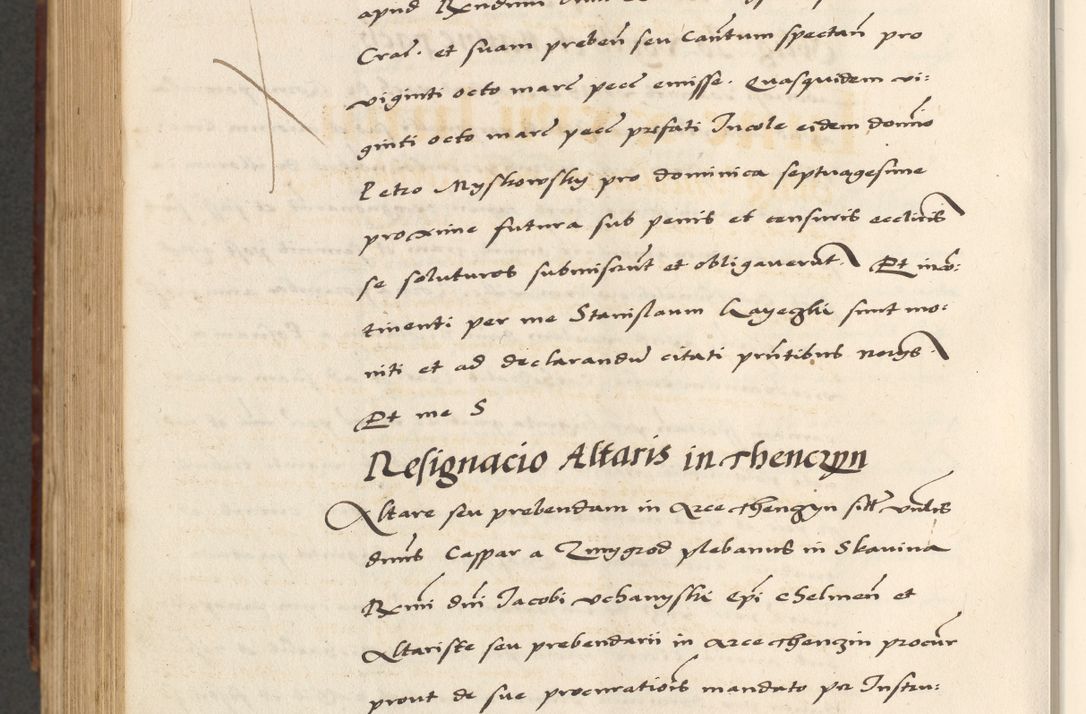 apud Rndum
Crac. et suam preben̄ seu Cantum spectan̄ pro
viginti octo marc̄ pecc̄ emisse. Quasquidem vi:
ginti octo marc̄ pecc̄ prefati Incole eidem domīo
Petro Myskowsky pro dominica septuagesime
proxime futura sub penis et censuris ecclīcis
se soluturos submiserūt et obligaverūt. Et incō:
tinenti per me Stanislaum Kayeghi sunt mo:
niti et ad declarandū citati prn̄tibus
Et me S
Resignacio Altaris in Thenczyn
Altare seu prebendam in Arce Thenczyn sitt̄
dn̄us Caspar a Zmygrod plebanus in Skavina
Rmi dn̄i Jacobi Vchanysky Ep̄i Chelmen̄ et
Altariste seu prebendarii in Arce Thenczin procūr
prout de sue procurationis mandato per Instru: